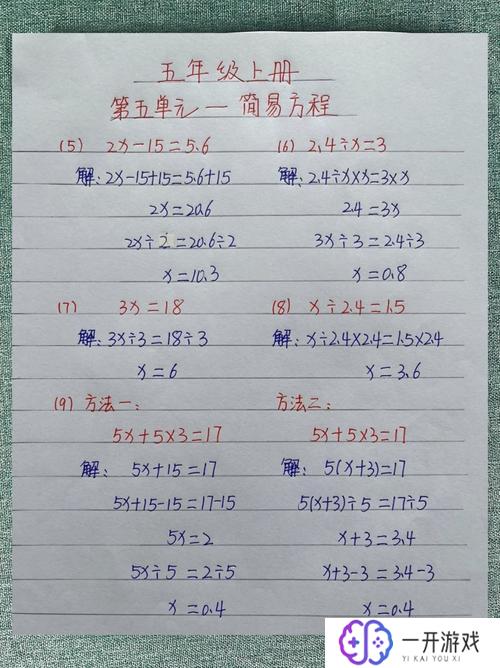 五年级上册
第五单元—简易方程
(5) 2x-15=5.6
解: 2x-15+15=5.6+15
2x=20.6
2x÷2=20.6÷2
x=10.3
(6) 2.4÷x=3
解: 2.4÷x×x=3×x
2.4=3x
3x÷3=2.4÷3
x=0.8
(7) 3x=18
解: 3x÷3=18÷3
x=6
(8) x÷2.4=1.5
解: x÷2.4×2.4=1.5×2.4
x=3.6
(9) 方法一:
5x+5×3=17
解: 5x+15=17
5x+15-15=17-15
5x=2
5x÷5=2÷5
x=0.4
方法二:
5x+5×3=17
解: 5(x+3)=17
5(x+3)÷5=17÷5
x+3=3.4
x+3-3=3.4-3
x=0.4
一开游戏
YI KAI YOU XI